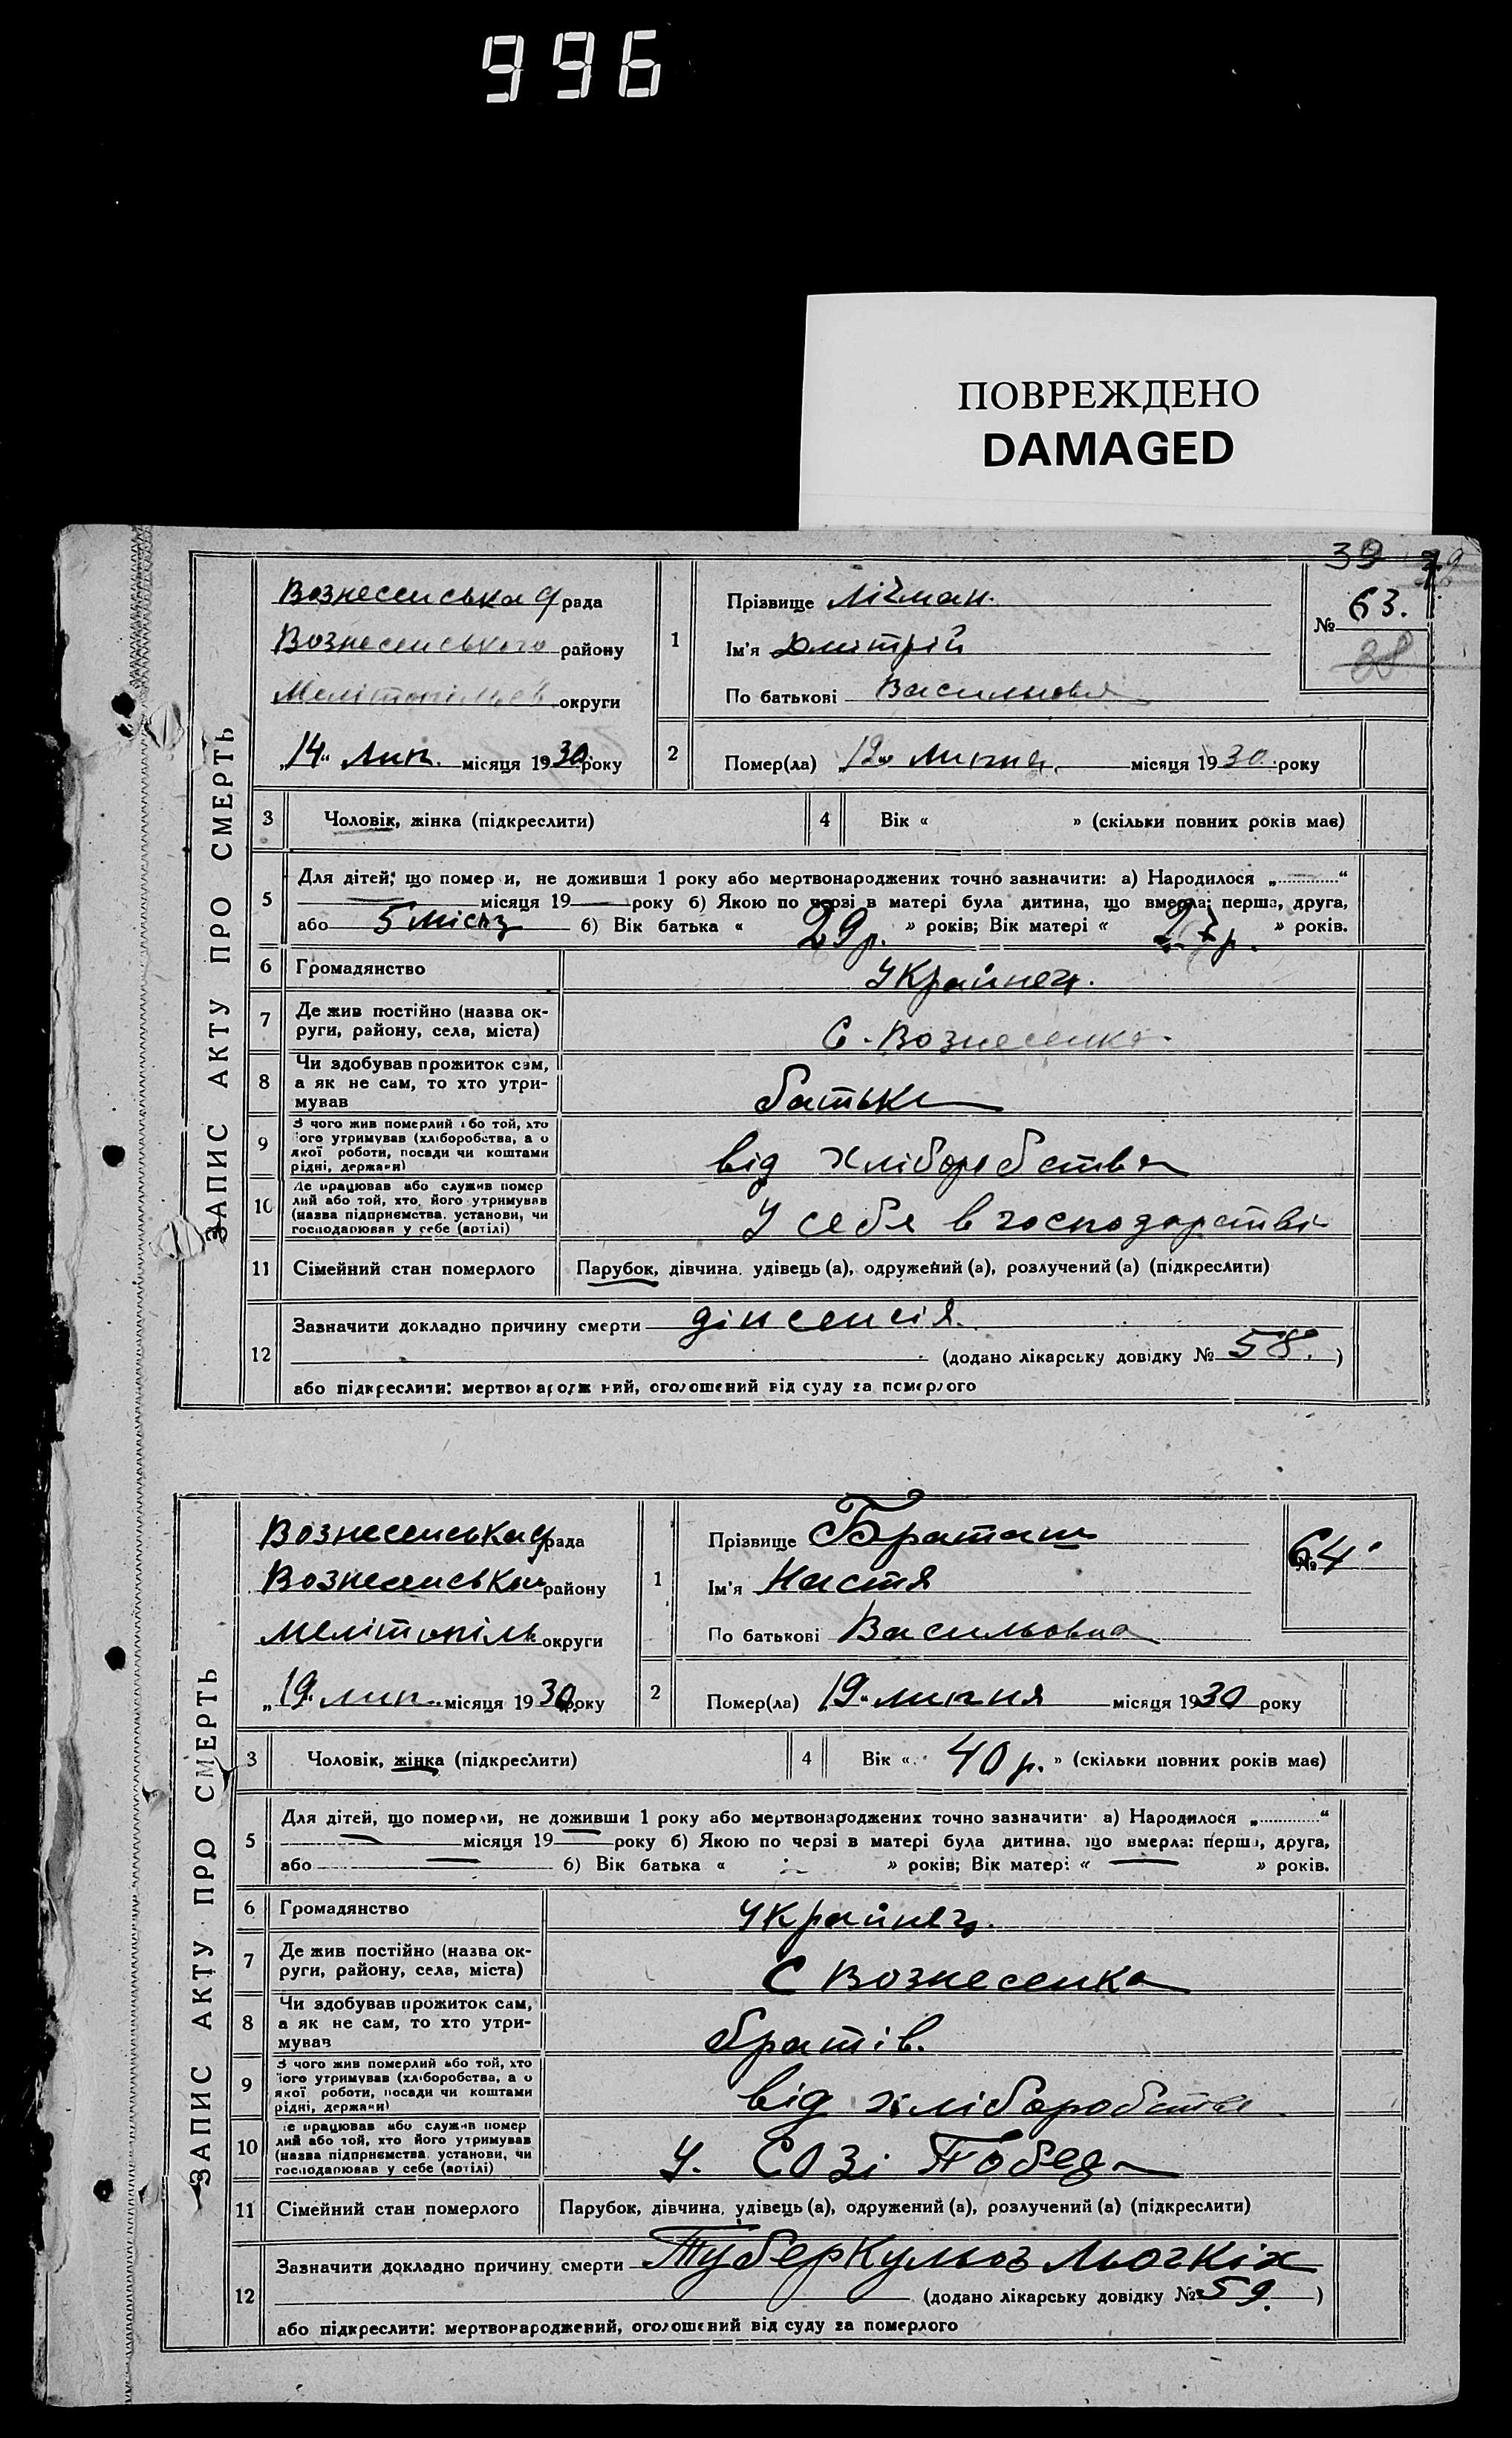 996
ПОВРЕЖДЕНО
DAMAGED
39
ЗАПИС АКТУ ПРО СМЕРТЬ
Вознесенська рада
Вознесенського району
округи
„14“ Лип. місяця 1930 року
1
Прізвище Лічман.
Ім'я Дмітрій
По батькові
№ 63.
38
2
Помер(ла) „12“ Липня місяця 1930 року
3 Чоловік, жінка (підкреслити)
4 Вік « » (скільки повних років має)
5
Для дітей, що померли, не доживши 1 року або мертвонароджених точно зазначити: а) Народилося „............“
місяця 19 року б) Якою по черзі в матері була дитина, що вмерла: перша, друга,
або 5 місяц б) Вік батька « 29 р. » років; Вік матері « 27 р. » років.
6 Громадянство Українец.
7 Де жив постійно (назва ок-
руги, району, села, міста)
С. Вознесенка.
8 Чи здобував прожиток сам,
а як не сам, то хто утри-
мував
батька
9 З чого жив померлий або той, хто
його утримував (хліборобства, а о
якої роботи, посади чи коштами
рідні, держави)
від хліборобства
10 Де працював або служив помер
лий або той, хто його утримував
(назва підприємства, установи, чи
господарював у себе (артілі)
У себе в господарстві
11 Сімейний стан померлого Парубок, дівчина, удівець (а), одружений (а), розлучений (а) (підкреслити)
12
Зазначити докладно причину смерти
(додано лікарську довідку № 58. )
або підкреслити: мертвонароджений, оголошений від суду за померлого
ЗАПИС АКТУ ПРО СМЕРТЬ
Вознесенська рада
району
Мелітопіль округи
„19“ лип. місяця 1930 року
1
Прізвище Браташ
Ім'я Настя
По батькові Васильовна
№ 64
2
Помер(ла) „19“ липня місяця 1930 року
3 Чоловік, жінка (підкреслити)
4 Вік « 40 р. » (скільки повних років має)
5
Для дітей, що померли, не доживши 1 року або мертвонароджених точно зазначити: а) Народилося „............“
— місяця 19— року б) Якою по черзі в матері була дитина, що вмерла: перша, друга,
або — б) Вік батька « - » років; Вік матері « — » років.
6 Громадянство Українец.
7 Де жив постійно (назва ок-
руги, району, села, міста)
С Вознесенка
8 Чи здобував прожиток сам,
а як не сам, то хто утри-
мував
братів.
9 З чого жив померлий або той, хто
його утримував (хліборобства, а о
якої роботи, посади чи коштами
рідні, держави)
від хліборобства
10 Де працював або служив помер
лий або той, хто його утримував
(назва підприємства, установи, чи
господарював у себе (артілі)
У. СОЗі Победа
11 Сімейний стан померлого Парубок, дівчина, удівець (а), одружений (а), розлучений (а) (підкреслити)
12
Зазначити докладно причину смерти Туберкульоз Льогкіх
(додано лікарську довідку № 59. )
або підкреслити: мертвонароджений, оголошений від суду за померлого